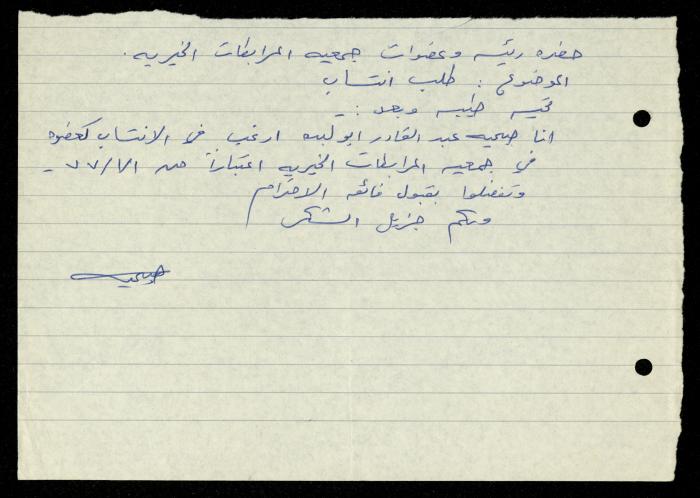 حضره رئيسه وعضوات جمعيه المرابطات الخيريه .
الموضوع : طلب انتساب
تحيه طيبه وبعد : -
انا صبحيه عبد القادر ابو لبده ارغب في الانتساب كعضوه
في جمعيه المرابطات الخيريه اعتباراً من ٧٧/٧/١ -
وتفضلوا بقبول فائق الاحترام
ولكم جزيل الشكر
صبحيه